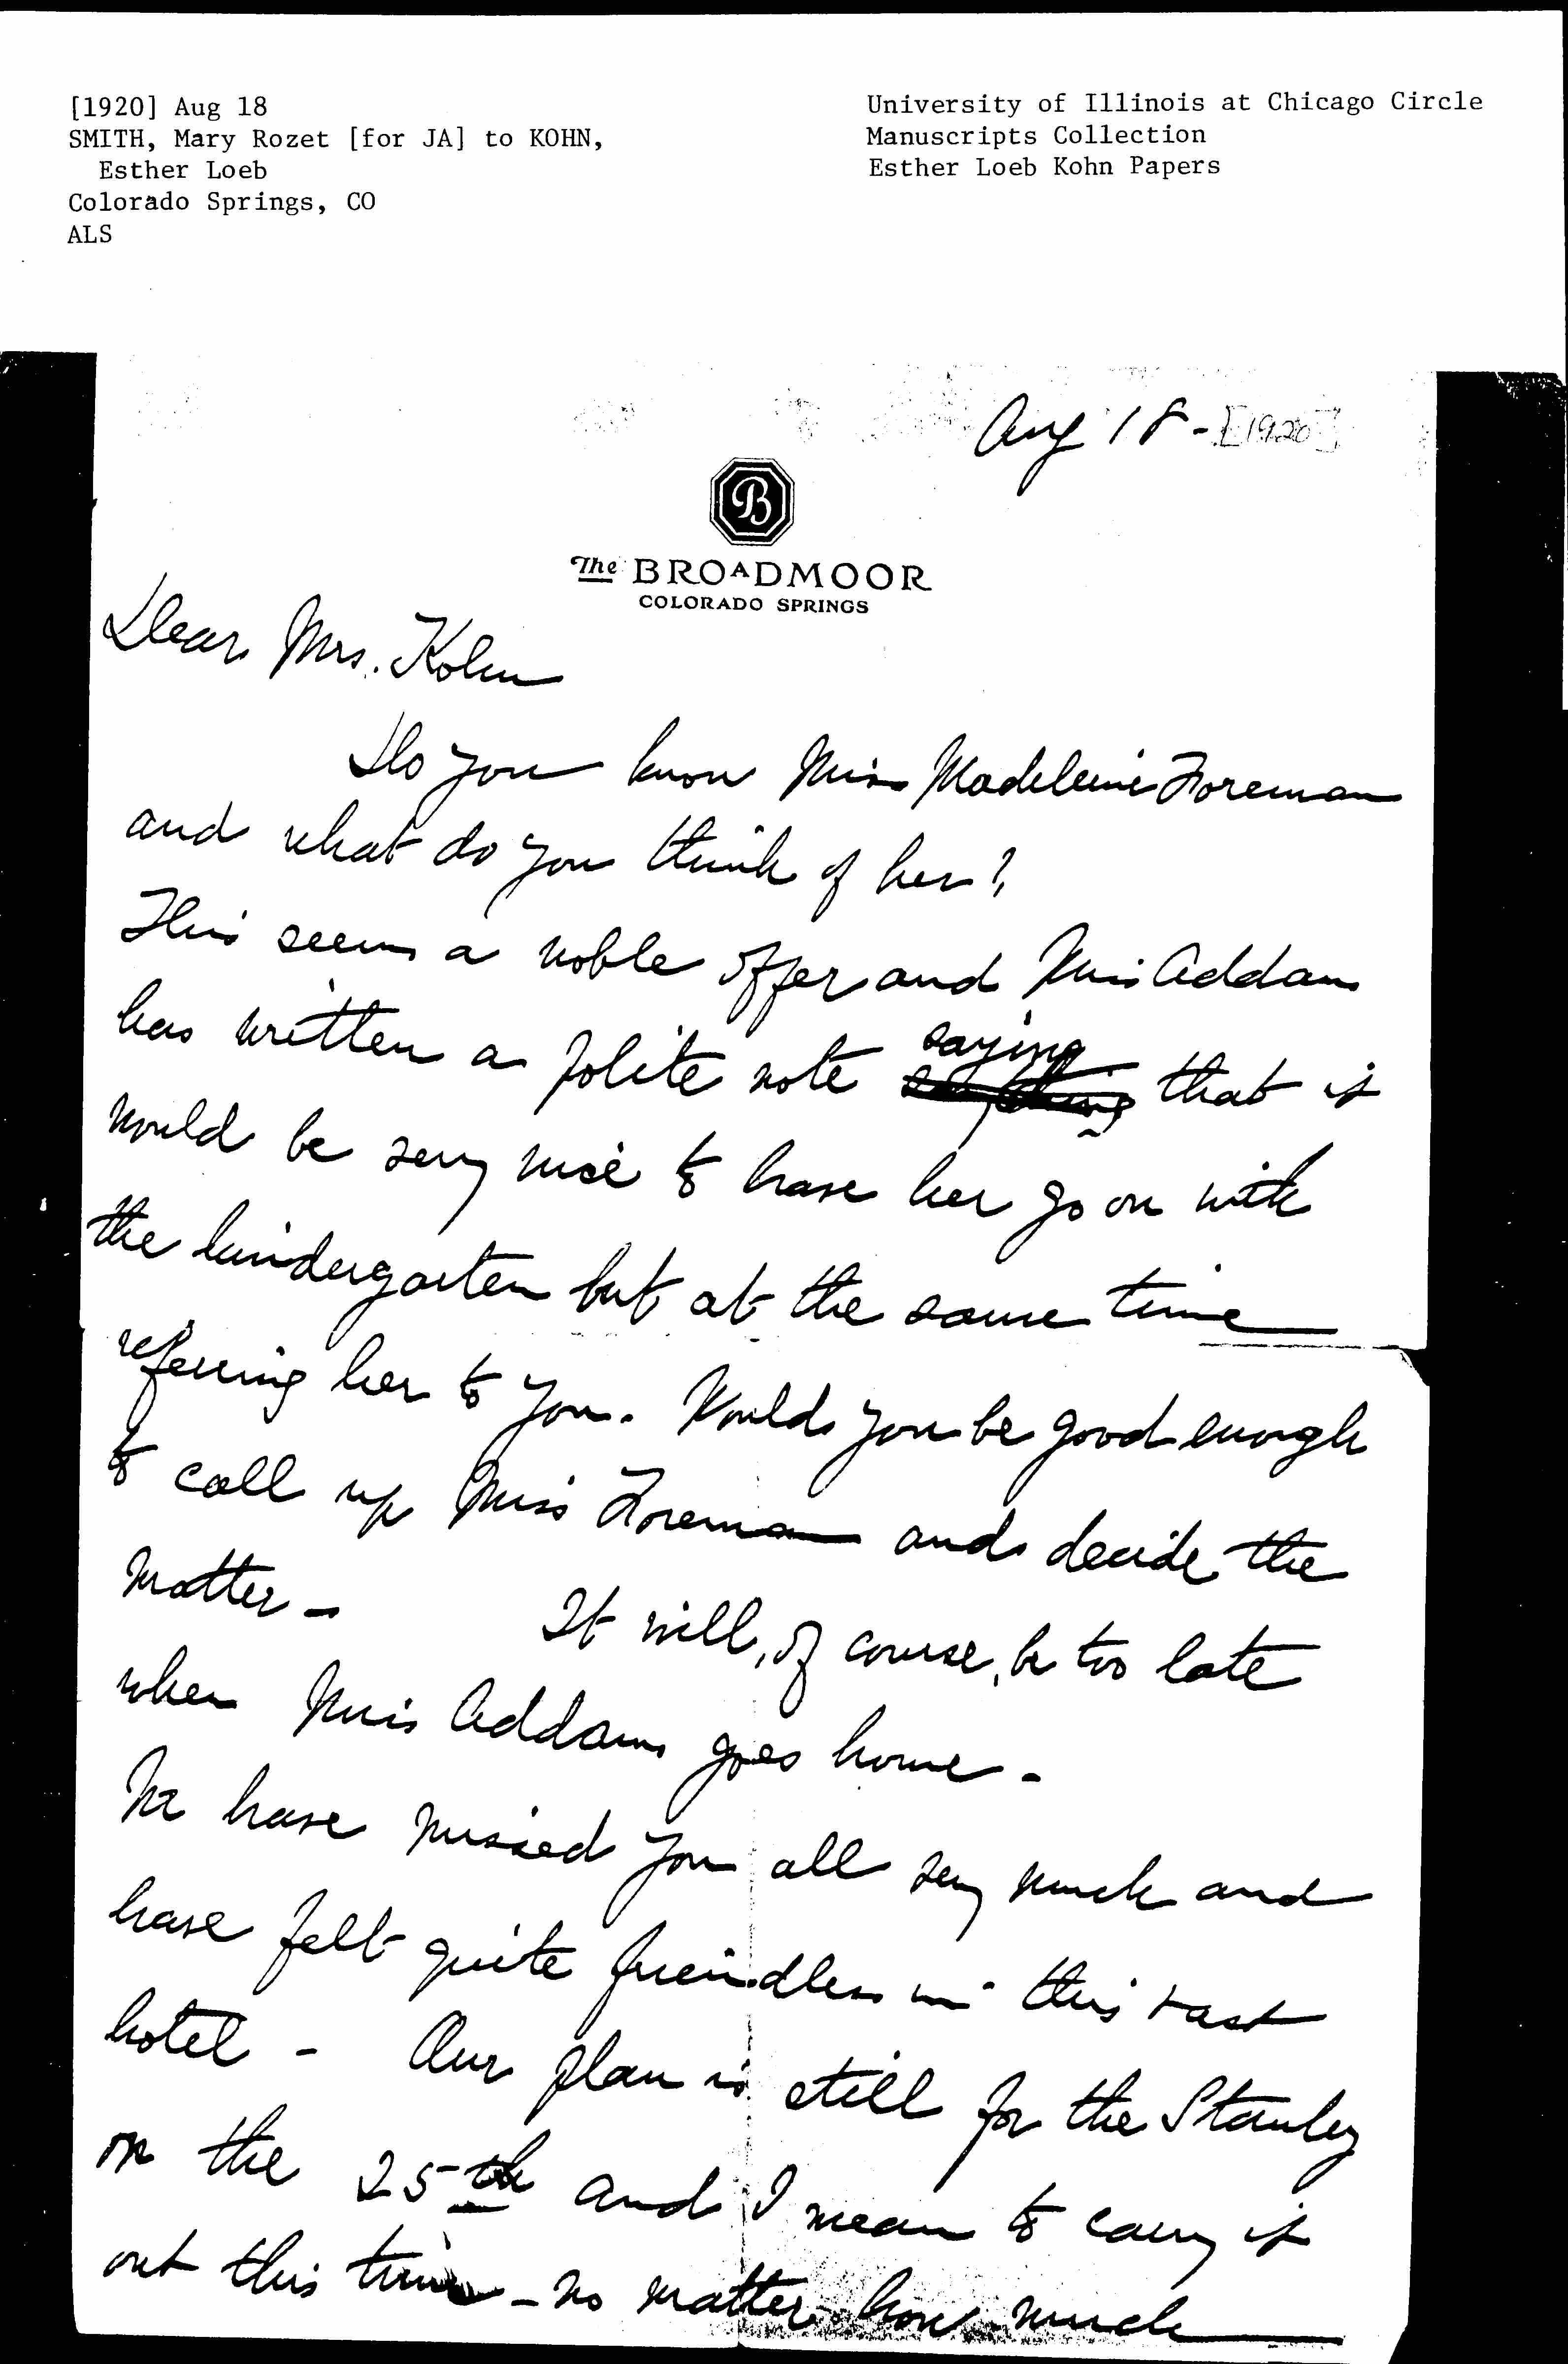 [1920] Aug 18
SMITH, Mary Rozet [for JA] to KOHN,
Esther Loeb
Colorado Springs, CO
ALS
University of Illinois at Chicago Circle
Manuscripts Collection
Esther Loeb Kohn Papers
Aug 18 - [1920]
B
The BROADMOOR
COLORADO SPRINGS
Dear Mrs. Kohn
Do you know Miss Madeleine Foreman
and what do you think of her?
This seems a noble offer and Miss Addams
has written a polite note saying that it
would be very nice to have her go on with
the kindergarten but at the same time
referring her to you. Would you be good enough
to call up Miss Foreman and decide the
matter -
It will, of course, be too late
when Miss Addams goes home -
We have missed you all very much and
have felt quite friendless in this vast
hotel - Our plan is still for the Stanley
on the 25th and I mean to carry it
out this time - no matter how much